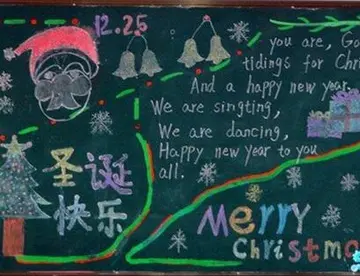 12.25
you are, Go
tidings for Chri
And a happy new year.
We are singting,
We are dancing,
Happy new year to you
all.
圣诞
快乐
Merry
Christma